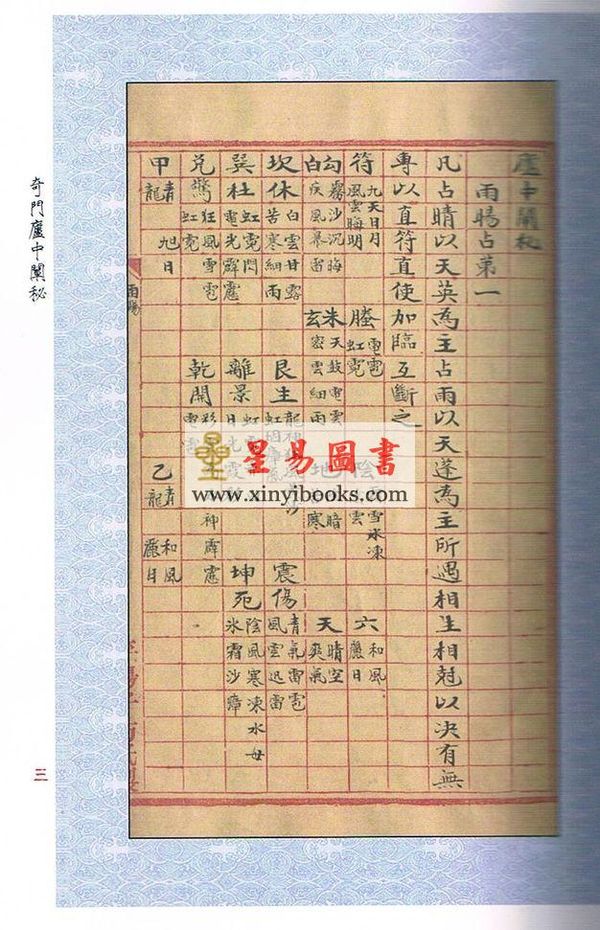 廬中闡秘
雨暘占第一
凡占晴以天英為主占雨以天蓬為主所遇相生相尅以決有無
專以直符直使加臨互斷之
符 九天日月 風雲晦明 螣 虹霓 陰 雪冰凍 雲 六 和風 麗日
勾白 霧沙沉晦 疾風暴雷 朱玄 天鼓電雲 密雲細雨 地 暗 寒 天 晴空 爽氣
坎休 白雲甘露 苦寒細雨 艮生 震傷 青氣雷雹 風雲迅雷
巽杜 虹霓閃 電光霹靂 離景 坤死 陰風寒凍水母 氷霜沙瘴
兌驚 狂風雪雹 虹霓 乾開 神霹靂
甲 青龍 旭日 乙 青龍 和風 麗日
雨暘
奇門廬中闡秘
三
星易圖書
www.xinyibooks.com